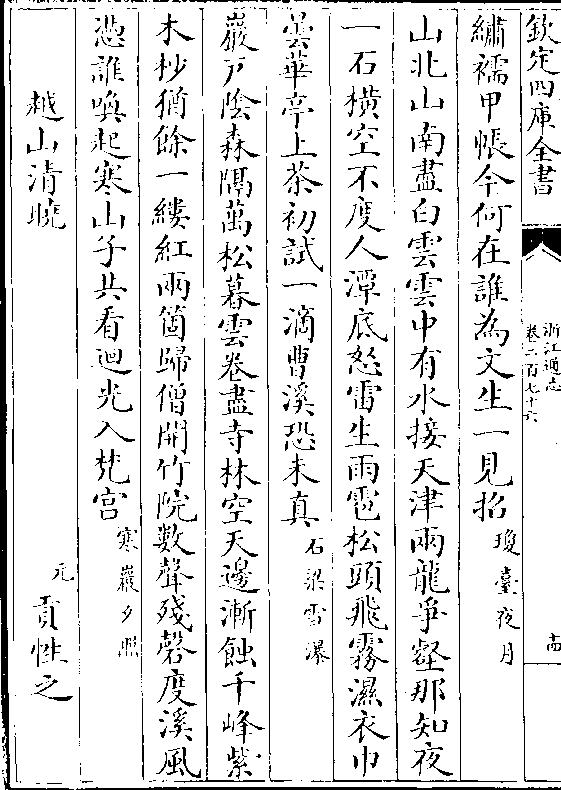 欽定四庫全書
浙江通志
卷二百七十六
十四
繡襦甲帳今何在誰為文生一見招瓊臺夜月
山北山南盡白雲雲中有水接天津兩龍爭壑那知夜
一石橫空不度人潭底怒雷生雨雹松頭飛霧濕衣巾
曇華亭上茶初試一滴曹溪恐未真石梁雪瀑
巖戸陰森隔萬松暮雲卷盡寺林空天邊漸蝕千峰紫
木杪猶餘一縷紅兩箇歸僧開竹院數聲殘磬度溪風
憑誰喚起寒山子共看迴光入梵宫寒巖夕照
越山清曉元貢性之